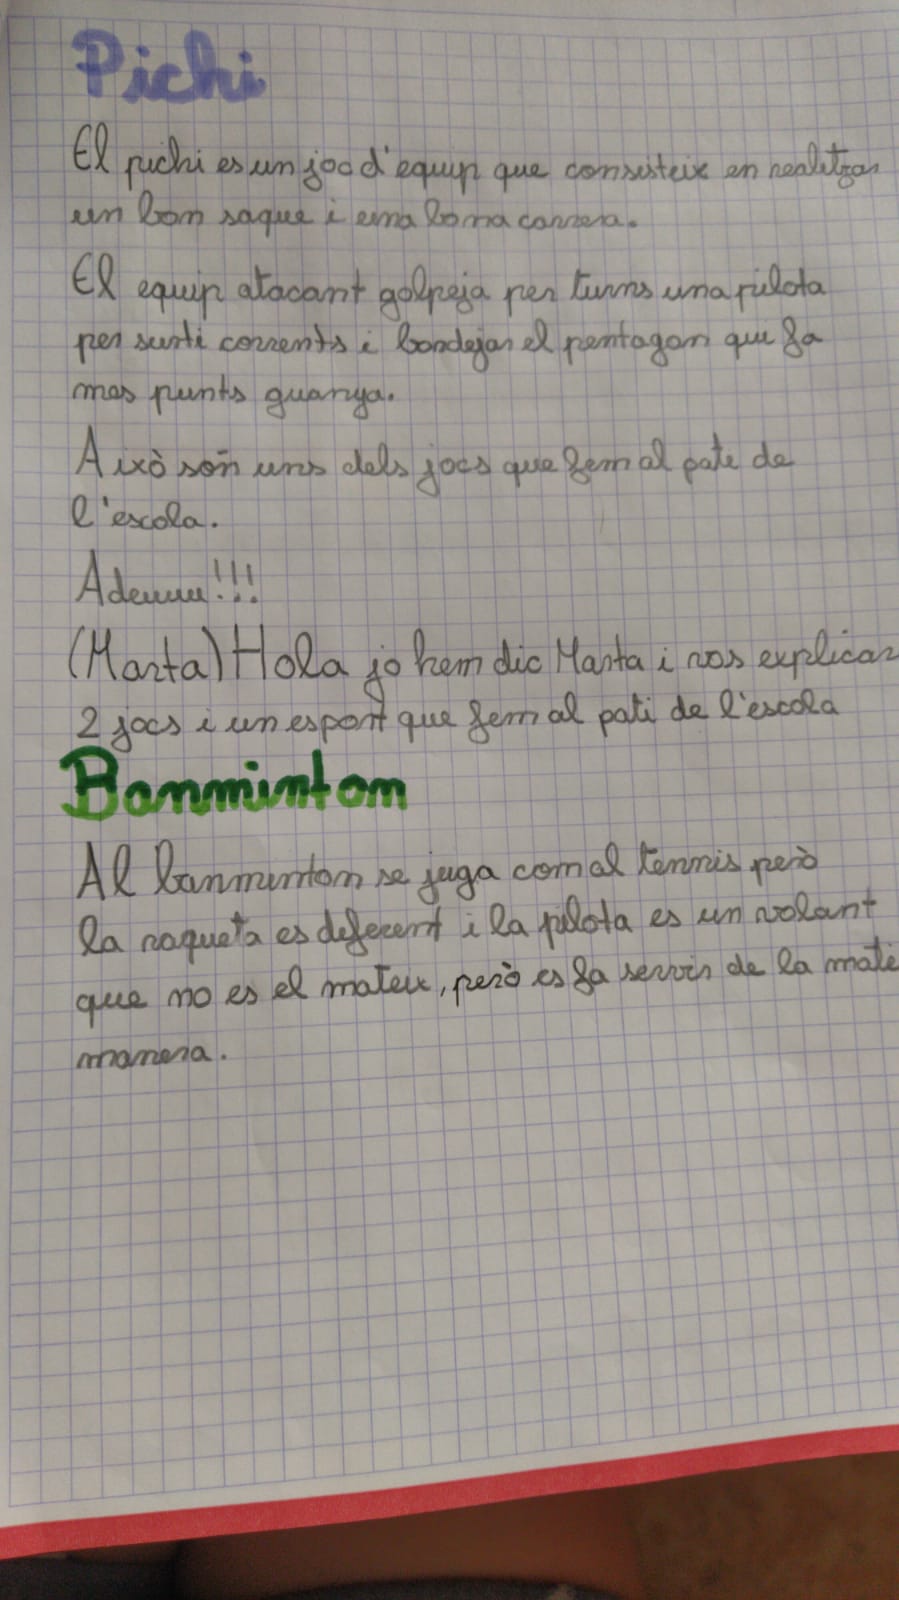 Pichi
El pichi es un joc d'equip que consisteix en realitzar
un bon saque i una bona carrera.
El equip atacant golpeja per turns una pilota
per surti corrents i bordejar el pentagon que fa
mes punts guanya.
Això són uns dels jocs que fem al pate de
l'escola.
Adeuuu!!!
(Marta) Hola jo hem dic Marta i vos explicar
2 jocs i un esport que fem al pati de l'escola
Banmintom
Al banminton se juga com al tennis però
la raqueta es deferent i la pilota es un volant
que no es el mateix, però es fa servir de la mate
manera.